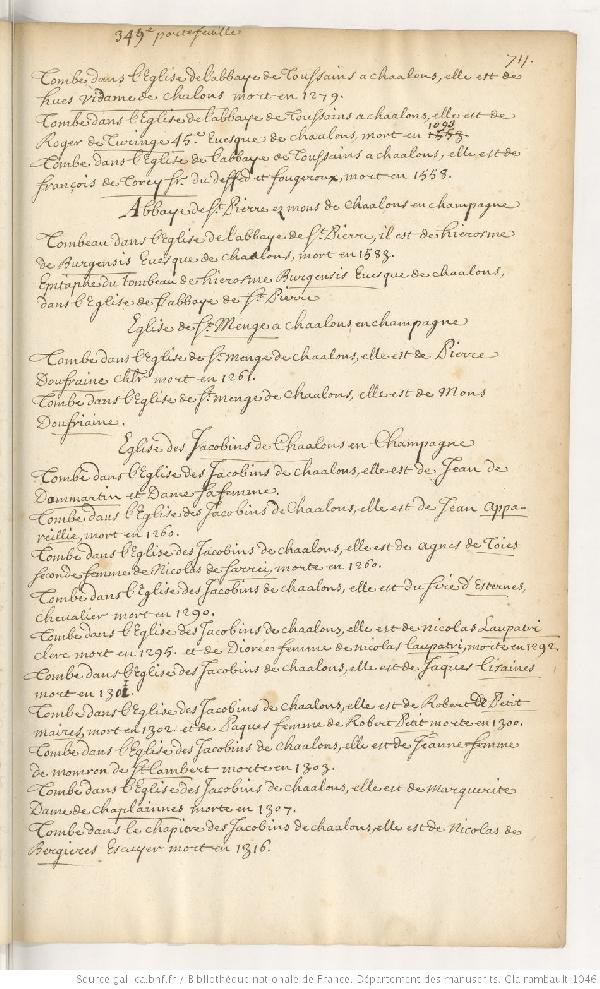 349e portefeuille
74.
Tombe dans l'Eglise de l'abbaye de Toussains a chaalons, elle est de
hues vidame de chalons mort en 1279.
Tombe dans l'Eglise de l'abbaye de Toussains a chaalons, elle est de
Roger de Turinge 45.e Evesque de chaalons, mort en 1093 1553.
Tombe dans l'Eglise de l'abbaye de Toussains a chaalons, elle est de
françois de Torcy Sr. du deffed et fougeroux, mort en 1558.
Abbaye de St. Pierre ez mons de Chaalons en champagne
Tombeau dans l'Eglise de l'abbaye de St. Pierre, il est de hierosme
de Burgensis Evesque de chaalons, mort en 1583.
Epitaphe du tombeau de hierosme Burgensis Evesque de chaalons,
dans l'Eglise de l'abbaye de St. Pierre
Eglise de St. Menge a chaalons en champagne
Tombe dans l'Eglise de St. menge de chaalons, elle est de Pierre
Doufraine chlr mort en 1261.
Tombe dans l'Eglise de St. menge de chaalons, elle est de Mons
Doufriaine.
Eglise des Jacobins de Chaalons en Champagne
Tombe dans l'Eglise des Jacobins de chaalons, elle est de Jean de
Dommartin et Dame sa femme.
Tombe dans l'Eglise des Jacobins de Chaalons, elle est de Jean appa-
reillie, mort en 1260.
Tombe dans l'Eglise des Jacobins de chaalons, elle est de agnes de Toies
seconde femme de Nicolas de morte en 1260.
Tombe dans l'Eglise des Jacobins de chaalons, elle est du sire d'Esternes,
chevalier mort en 1290.
Tombe dans l'Eglise des Jacobins de chaalons, elle est de nicolas Laupatri
clerc mort en 1295. et de femme de nicolas laupatri, morte en 1292.
Tombe dans l'Eglise des Jacobins de chaalons, elle est de Jaques Lisaines
mort en 1301.
Tombe dans l'Eglise des Jacobins de chaalons, elle est de Robert de Petit
maires, mort en 1302 et de Paques femme de Robert Petit morte en 1300.
Tombe dans l'Eglise des Jacobins de Chaalons, elle est de Jeanne femme
de momron de St. Lambert morte en 1303.
Tombe dans l'Eglise des Jacobins de chaalons, elle est de Marguerite
Dame de chaplainnes morte en 1307.
Tombe dans le chapitre des Jacobins de chaalons, elle est de Nicolas de
Bergieres Escuyer mort en 1316.
Source gallica.bnf.fr / Bibliothèque nationale de France. Département des manuscrits. Clairambault 1046